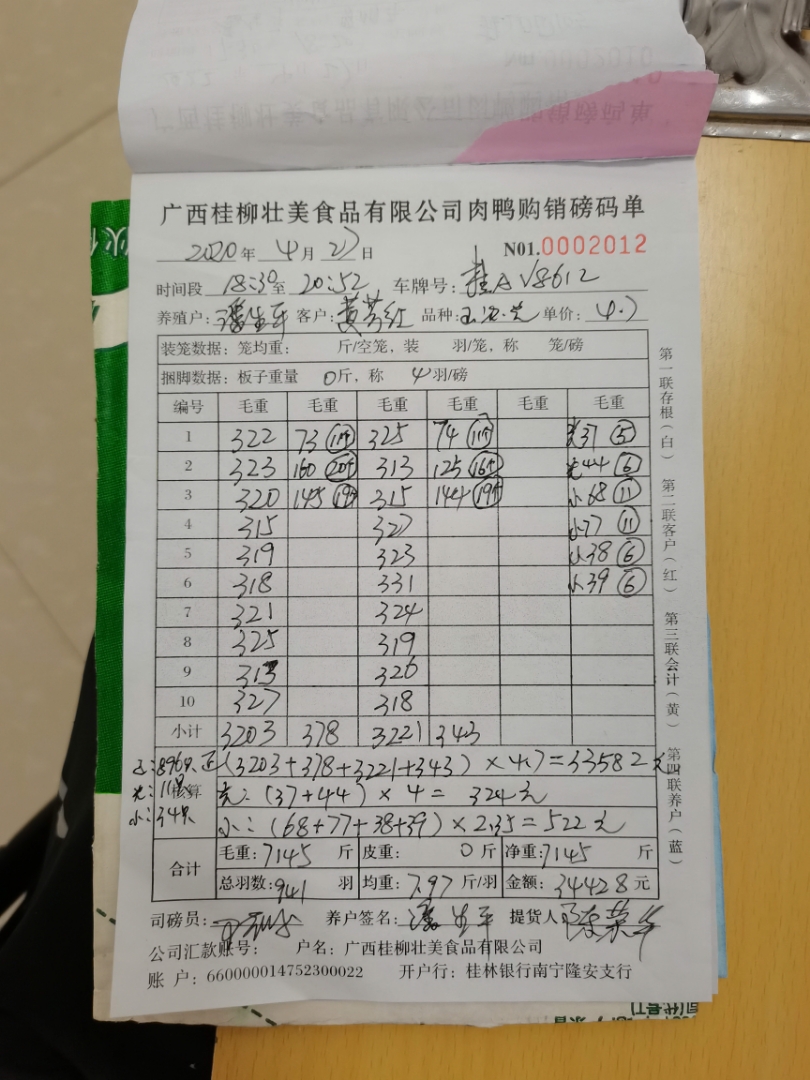 广西桂柳壮美食品有限公司肉鸭购销磅码单
2020年 4月 27日 N01.0002012
时间段 18:30至 20:52 车牌号: 桂A V8612
养殖户: 潘生平 客户: 黄芳红 品种: 单价: 4.7
装笼数据: 笼均重: 斤/空笼, 装 羽/笼, 称 笼/磅
捆脚数据: 板子重量 0斤, 称 4羽/磅
编号 毛重 毛重 毛重 毛重 毛重 毛重
1 322 73 325 74 37 ⑤
2 323 160 313 125 光44 ⑥
3 320 145 315 144 小68 ⑪
4 315 327 小77 ⑪
5 319 323 小38 ⑥
6 318 331 小39 ⑥
7 321 324
8 325 319
9 313 326
10 327 318
小计 3203 378 3221 343
正:896只 正(3203+378+3221+343)×4.7=33582元
光:11只 算 光:(37+44)×4= 324元
小:34只 小:(68+77+38+39)×2.35=522元
合计 毛重:7145 斤 皮重: 0斤 净重:7145 斤
总羽数:941 羽 均重:7.97斤/羽 金额:34428元
司磅员: 养户签名: 潘生平 提货人 陈荣华
公司汇款账号: 户名: 广西桂柳壮美食品有限公司
账 户: 660000014752300022 开户行: 桂林银行南宁隆安支行
第一联存根(白) 第二联客户(红) 第三联会计(黄) 第四联养户(蓝)